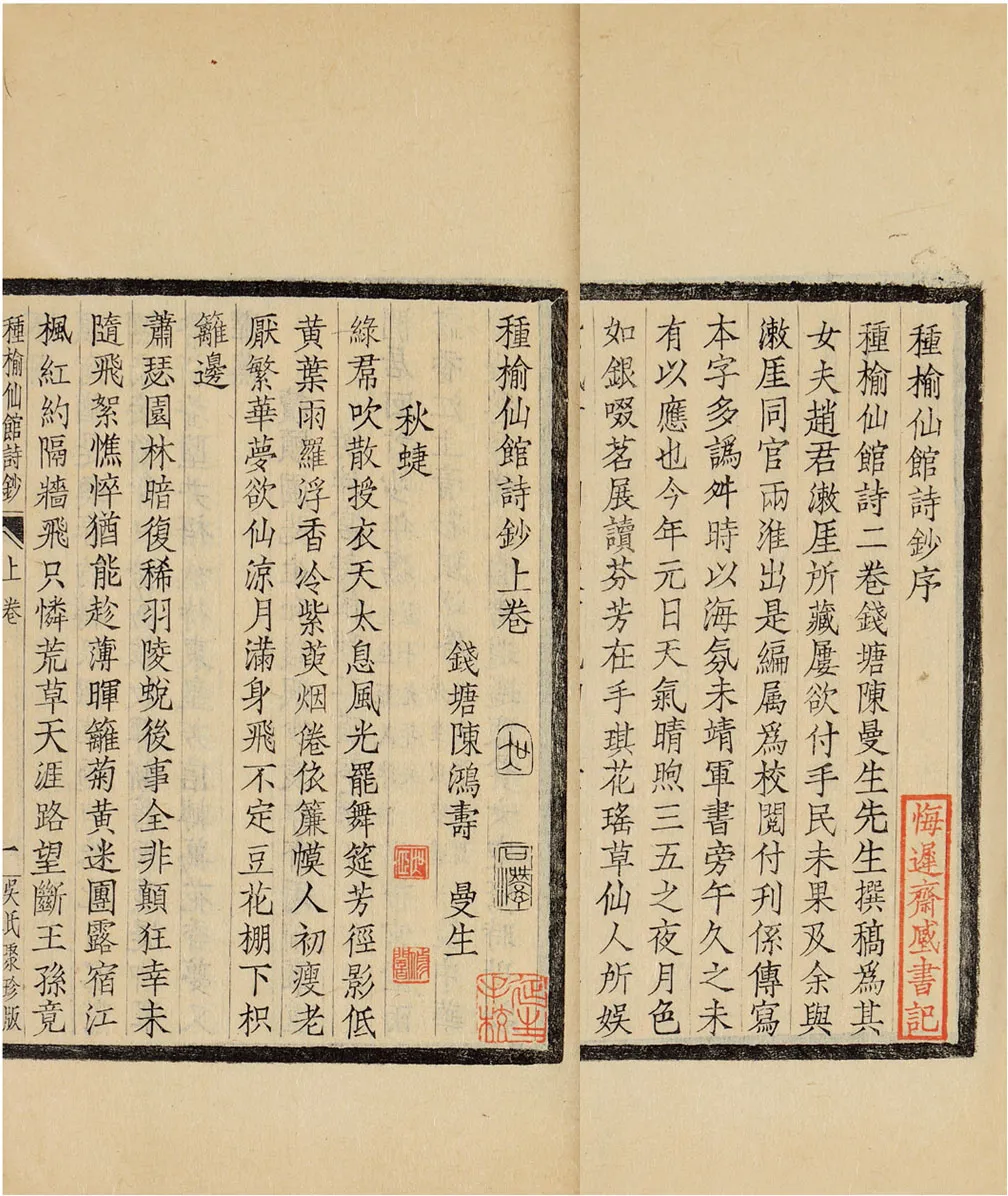 種榆仙館詩鈔序
種榆仙館詩二巻錢塘陳曼生先生撰稿爲其
女夫趙君潄厓所藏屢欲付手民未果及余與
潄厓同官兩淮出是編属爲校閱付刋係傳寫
本字多譌舛時以海氛未靖軍書旁午久之未
有以應也今年元日天氣晴煦三五之夜月色
如銀啜茗展讀芬芳在手琪花瑤草仙人所娱
悔遲齋臧書記
種榆仙館詩鈔上巻
錢塘陳鴻壽 曼生
秋蜨
綠帬吹散授衣天太息風光罷舞筵芳徑影低
黃葉雨羅浮香冷紫萸烟倦依簾幙人初瘦老
厭繁華夢欲仙涼月滿身飛不定豆花棚下枳
籬邊
蕭瑟園林暗復稀羽陵蛻後事全非顛狂幸未
隨飛絮憔悴猶能趁薄暉籬菊黃迷團露宿江
楓紅約隔牆飛只憐荒草天涯路望斷王孫竟
種榆仙館詩鈔 上巻 一 吳氏聚珍版